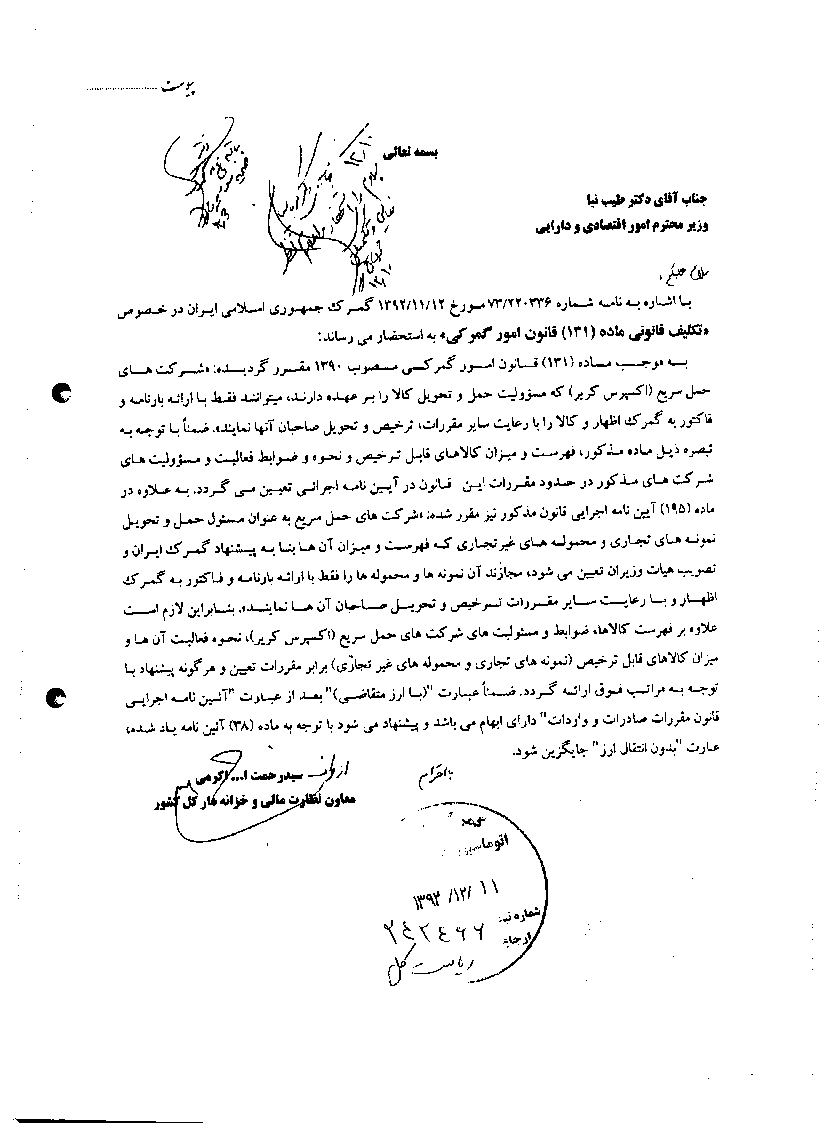 پیوست
بسمه تعالی
جناب آقای دکتر طیب نیا
وزیر محترم امور اقتصادی و دارایی
سلام علیکم،
با اشاره به نامه شماره ۷۳/۲۲۰۳۳۶مورخ ۱۳۹۲/۱۱/۱۲ گمرک جمهوری اسلامی ایران در خصوص
«تکلیف قانونی ماده (۱۳۱) قانون امور گمرکی» به استحضار می رساند:
به موجب ماده (۱۳۱) قانون امور گمرکی مصوب ۱۳۹۰ مقرر گردیده: «شرکت های
حمل سریع (اکسپرس کریر) که مسؤولیت حمل و تحویل کالا را بر عهده دارند، میتوانند فقط با ارائه بارنامه و
فاکتور به گمرک اظهار و کالا را با رعایت سایر مقررات، ترخیص و تحویل صاحبان آنها نمایند. ضمناً با توجه به
تبصره ذیل ماده مذکور، فهرست و میزان کالاهای قابل ترخیص و نحوه و ضوابط فعالیت و مسؤولیت های
شرکت های مذکور در حدود مقررات این قانون در آیین نامه اجرائی تعیین می گردد. به علاوه در
ماده (۱۹۵) آیین نامه اجرایی قانون مذکور نیز مقرر شده: «شرکت های حمل سریع به عنوان مسئول حمل و تحویل
نمونه های تجاری و محموله های غیرتجاری که فهرست و میزان آن ها بنا به پیشنهاد گمرک ایران و
تصویب هیات وزیران تعیین می شود، مجازند آن نمونه ها و محموله ها را فقط با ارائه بارنامه و فاکتور به گمرک
اظهار و با رعایت سایر مقررات ترخیص و تحویل صاحبان آن ها نمایند». بنابراین لازم است
علاوه بر فهرست کالاها، ضوابط و مسئولیت های شرکت های حمل سریع (اکسپرس کریر)، نحوه فعالیت آن ها و
میزان کالاهای قابل ترخیص (نمونه های تجاری و محموله های غیر تجاری) برابر مقررات تعیین و هرگونه پیشنهاد با
توجه به مراتب فوق ارائه گردد. ضمناً عبارت "(با ارز متقاضی)" بعد از عبارت "آئین نامه اجرایی
قانون مقررات صادرات و واردات" دارای ابهام می باشد و پیشنهاد می شود با توجه به ماده (۳۸) آئین نامه یاد شده،
عبارت "بدون انتقال ارز" جایگزین شود.
با احترام
سیدرحمت ا... اکرمی
معاون نظارت مالی و خزانه دار کل کشور
۱۳۹۲/۱۲/۱۱
شماره
۲۴۲۴۶۶
ریاست کل